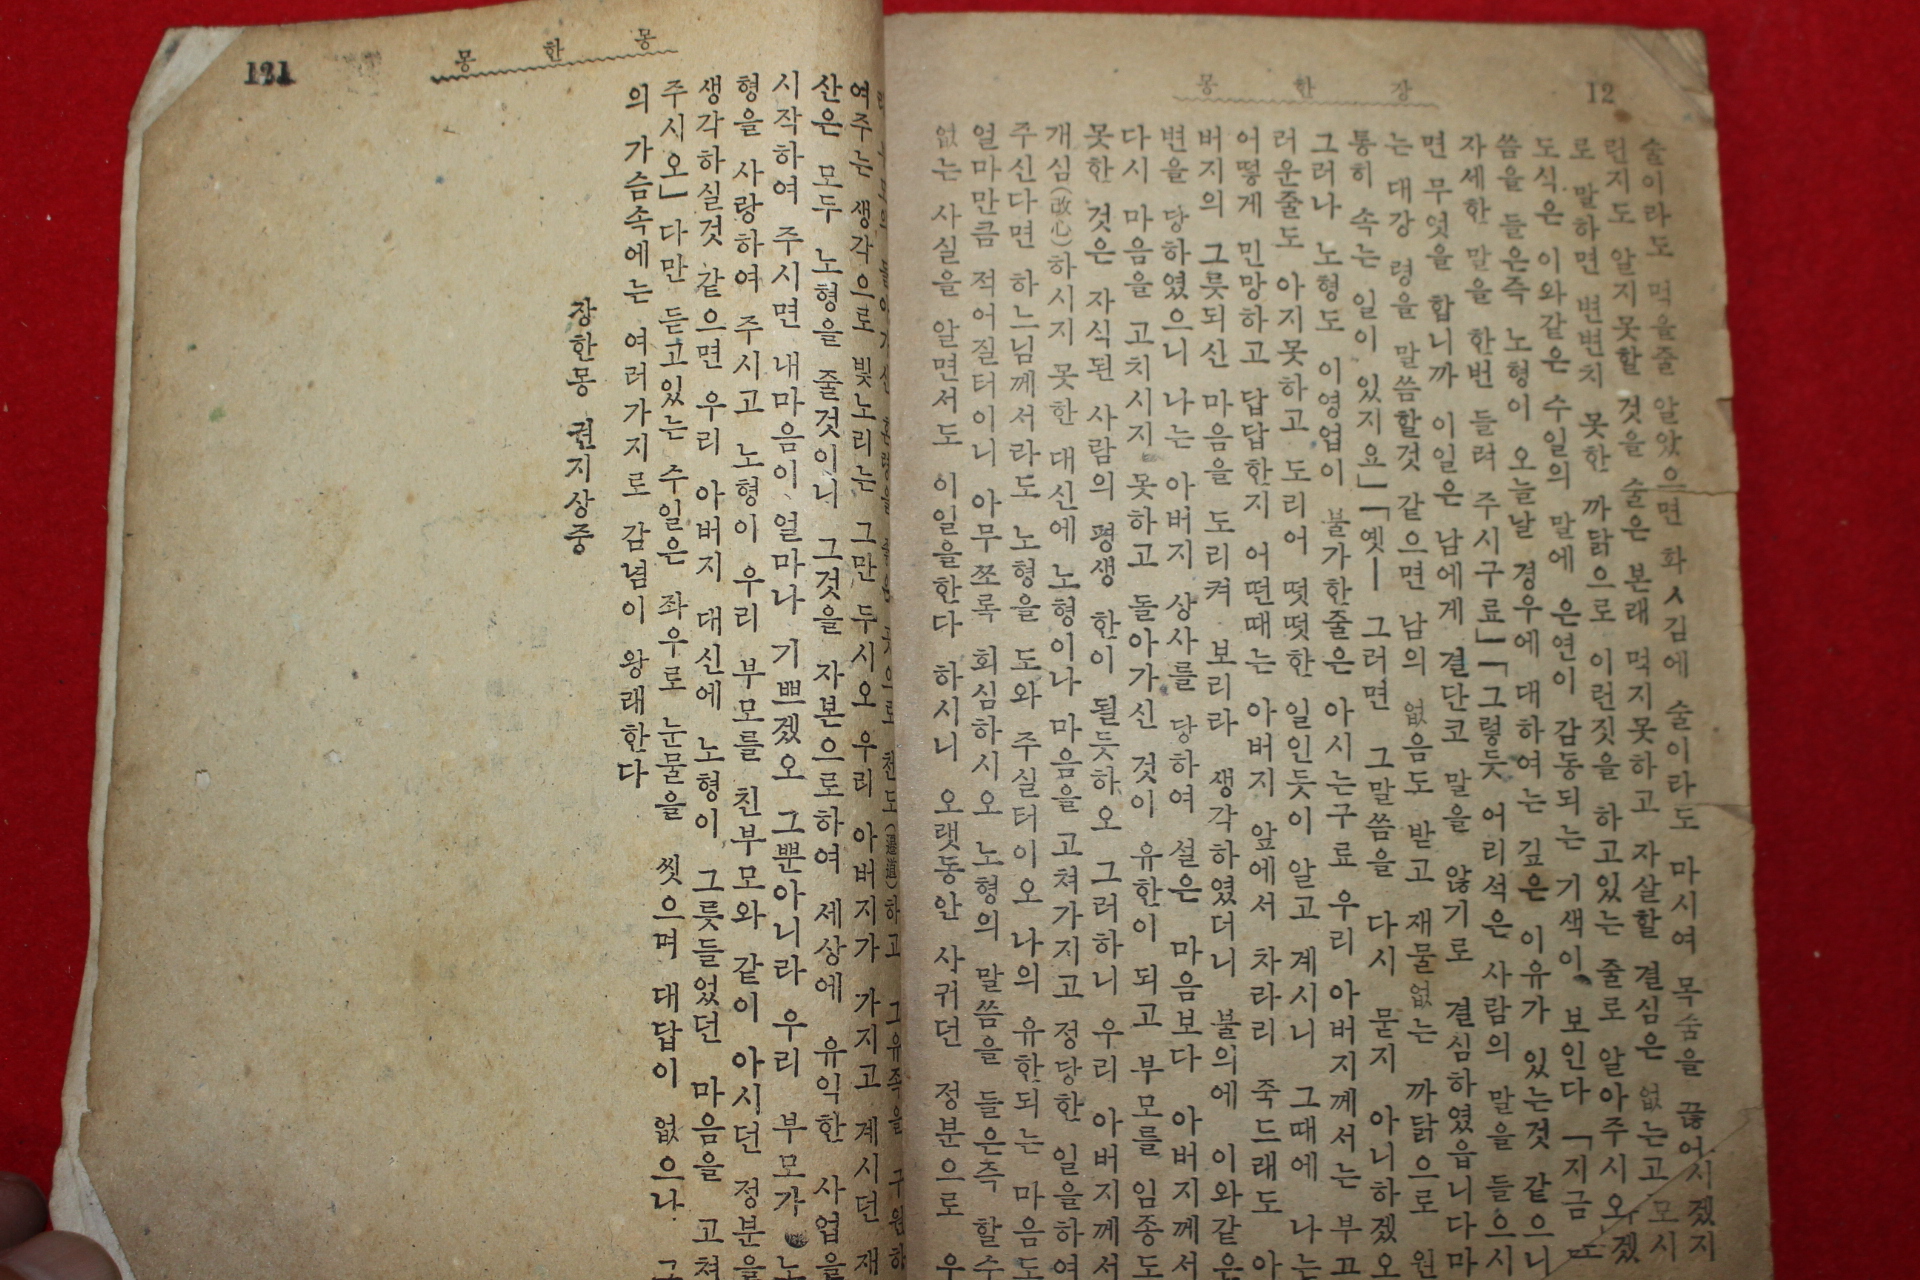 12
장한몽
술이라도 먹을줄 알았으면 화ㅅ김에 술이라도 마시여 목숨을 끊어시겠지
린지도 알지못할 것을 술은 본래 먹지못하고 자살할 결심은 없는고 모시
로 말하면 변변치 못한 까닭으로 이런짓을 하고있는 줄로 알아주시오겠
도식은 이와같은 수일의 말에 은연이 감동되는 기색이 보인다 「지금 또
씀을 들은즉 노형이 오늘날 경우에 대하여는 깊은 이유가 있는것 같으니
자세한 말을 한번 들려 주시구료」「그렇듯 어리석은 사람의 말을 들으시
면 무엇을 합니까 이일은 남에게 결단코 말을 않기로 결심하였읍니다마
는 대강 령을 말씀할것 같으면 남의 없음도 받고 재물없는 까닭으로 원
통히 속는 일이 있지요」「옛ㅡ 그러면 그말씀을 다시 묻지 아니하겠오
그러나 노형도 이영업이 불가한줄은 아시는구료 우리 아버지께서는 부끄
러운줄도 아지못하고 도리어 떳떳한 일인듯이 알고 계시니 그때에 나는
어떻게 민망하고 답답한지 어떤때는 아버지 앞에서 차라리 죽드래도 아
버지의 그릇되신 마음을 도리켜 보리라 생각하였더니 불의에 이와같은
변을 당하였으니 나는 아버지 상사를 당하여 설은 마음보다 아버지께서
다시 마음을 고치시지 못하고 돌아가신 것이 유한이 되고 부모를 임종도
못한 것은 자식된 사람의 평생 한이 될듯하오 그러하니 우리 아버지께서
개심(改心)하시지 못한 대신에 노형이나 마음을 고쳐가지고 정당한 일을하여
주신다면 하느님께서라도 노형을 도와 주실터이오 나의 유한되는 마음도
얼마만큼 적어질터이니 아무쪼록 회심하시오 노형의 말씀을 들은즉 할수
없는 사실을 알면서도 이일을한다 하시니 오랫동안 사귀던 정분으로 우
몽한몽
121
천도(遷道)하고 그유족을 구원하
여주는 생각으로 빛노리는 그만 두시오 우리 아버지가 가지고 계시던 재
산은 모두 노형을 줄것이니 그것을 자본으로하여 세상에 유익한 사업을
시작하여 주시면 내마음이 얼마나 기쁘겠오 그뿐아니라 우리 부모가 노
형을 사랑하여 주시고 노형이 우리 부모를 친부모와 같이 아시던 정분을
생각하실것 같으면 우리 아버지 대신에 노형이 그릇들었던 마음을 고쳐
주시오」 다만 듣고있는 수일은 좌우로 눈물을 씻으며 대답이 없으나 그
의 가슴속에는 여러가지로 감념이 왕래한다
장한몽 권지상중